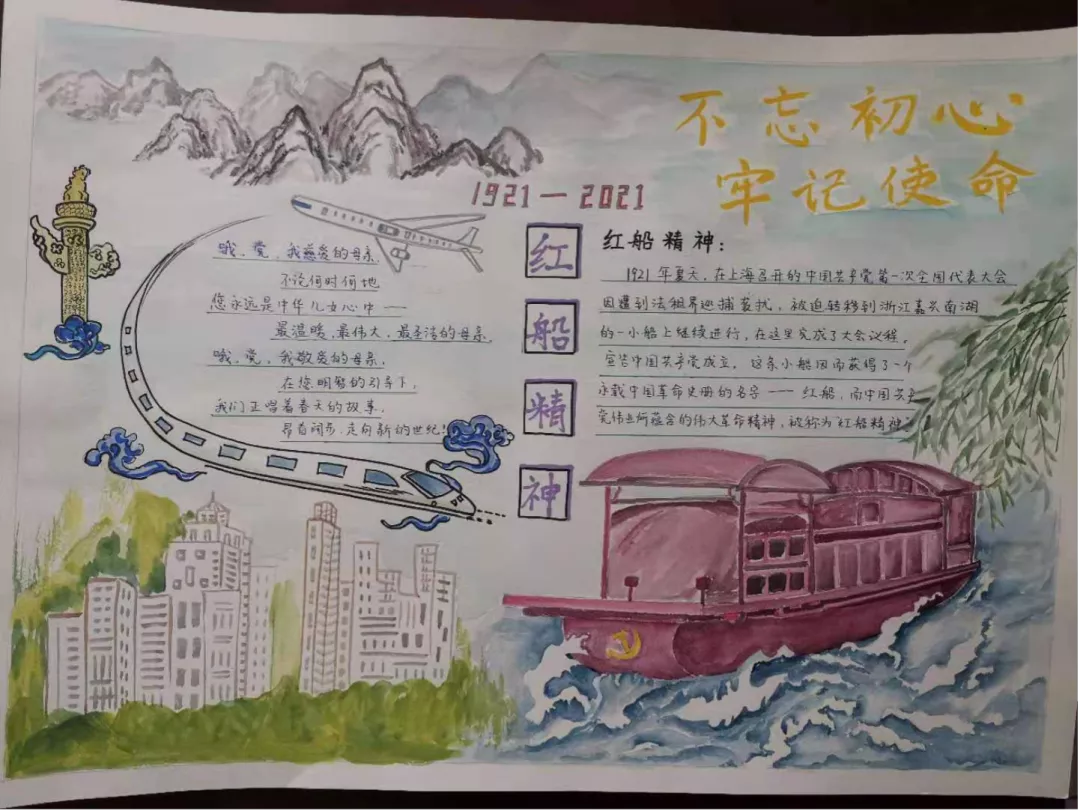 不忘初心
牢记使命
1921—2021
哦、党、我慈爱的母亲、
不论何时何地
您永远是中华儿女心中——
最温暖、最伟大、最圣洁的母亲、
哦、党、我敬爱的母亲、
在您明智的引导下,
我们正唱着春天的故事、
昂首阔步、走向新的世纪!
红
船
精
神
红船精神:
1921年夏天,在上海召开的中国共产党第一次全国代表大会
因遭到法租界巡捕袭扰,被迫转移到浙江嘉兴南湖
的一小船上继续进行,在这里完成了大会议程,
宣告中国共产党成立。这条小船因而获得了一个
永载中国革命史册的名字——红船,而中国共产
党伟业所蕴含的伟大革命精神,被称为"红船精神"